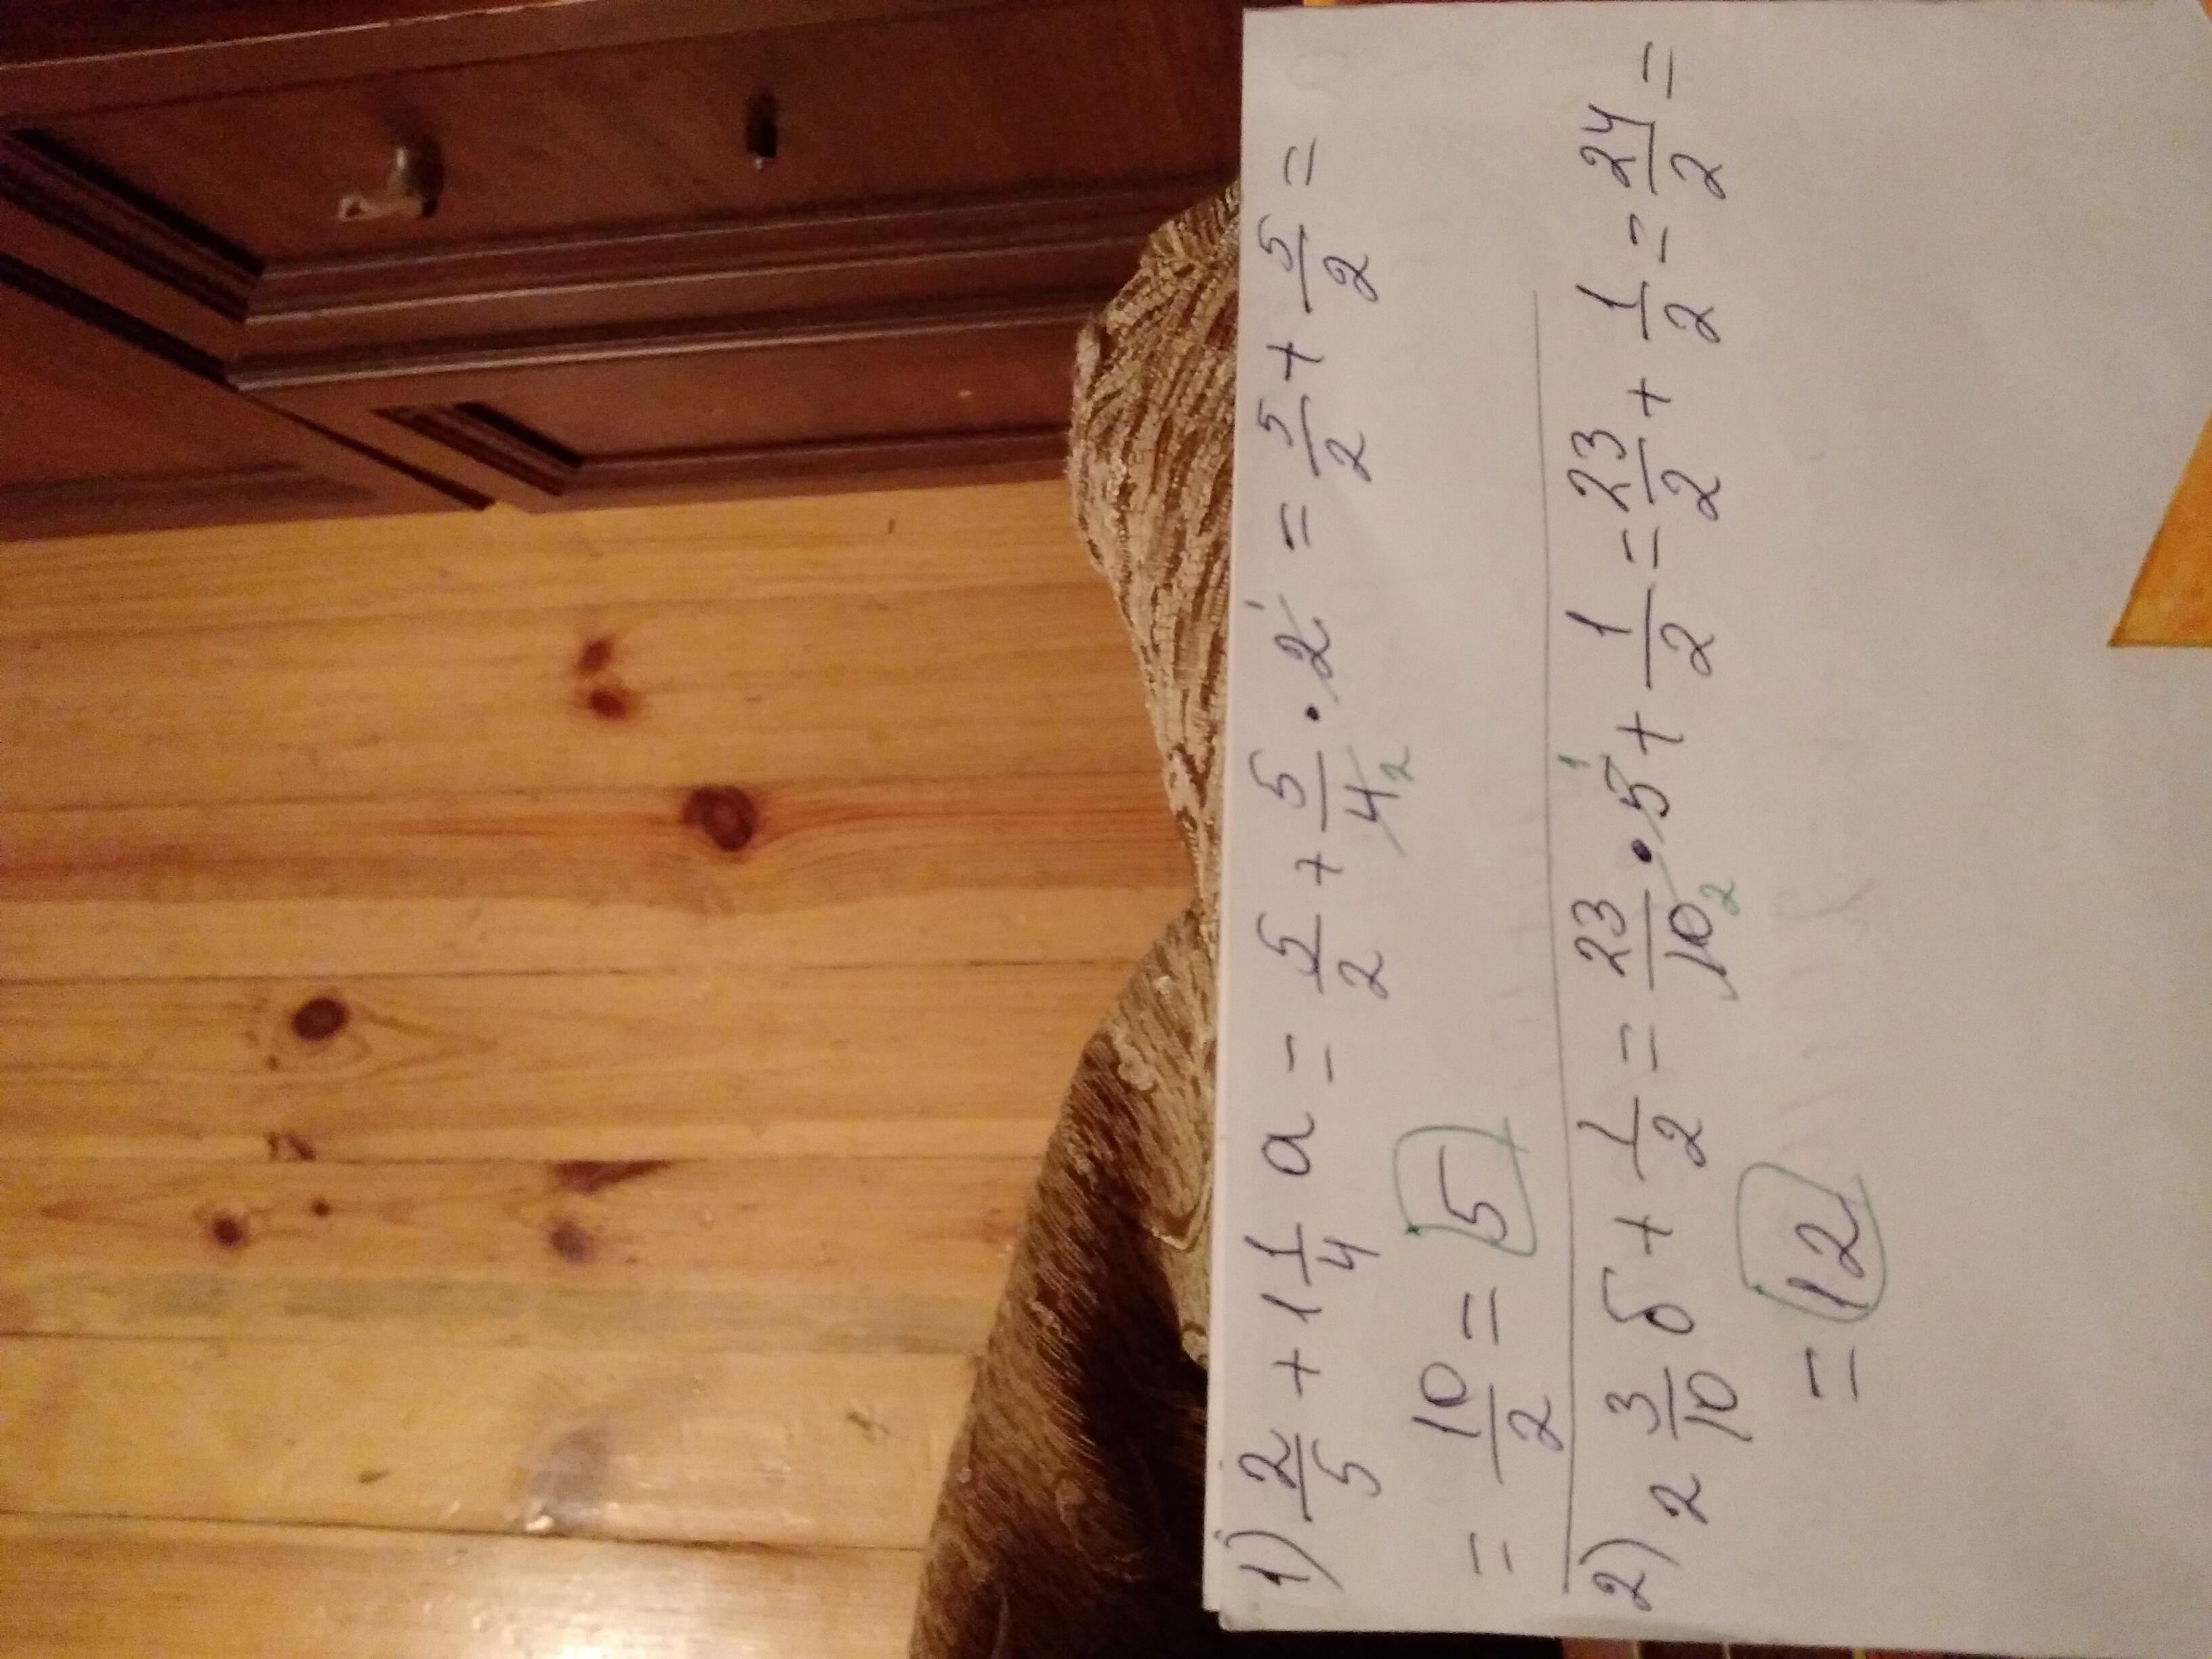 1) 2/5 + 1 1/4 a = 5/2 + 5/4 2 · 2 1 = 5/2 + 5/2 =
= 10/2 = 5
2) 2 3/10 б + 1/2 = 23/10 2 · 5 1 + 1/2 = 23/2 + 1/2 = 24/2 =
= 12